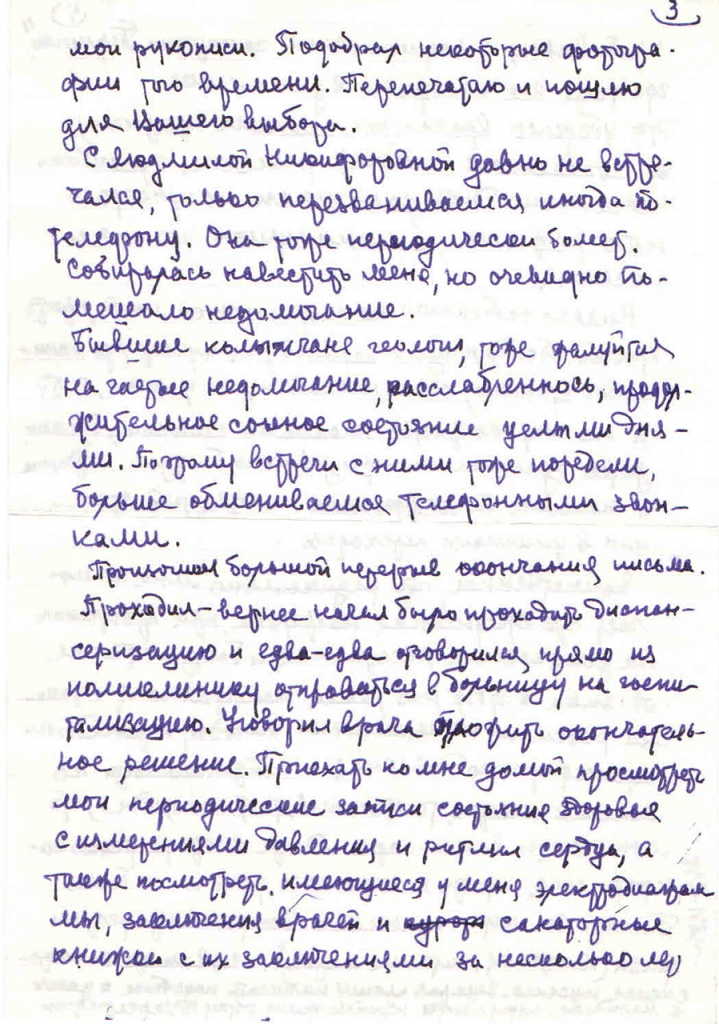 3
мои рукописи. Подобрал некоторые фотогра-
фии того времени. Перепечатаю и пошлю
для Вашего выбора.
С Людмилой Никифоровной давно не встре-
чался, только перезваниваемся иногда по-
телефону. Она тоже периодически болеет.
Собиралась навестить меня, но очевидно по-
мешало недомогание.
Бывшие колымчане геологи, тоже жалуются
на частые недомогание, расслабленность, продол-
жительное сонное состояние целыми дня-
ми. Поэтому встречи с ними тоже поредели,
больше обмениваемся телефонными звон-
ками.
Произошел большой перерыв окончания письма.
Проходил - вернее начал было проходить диспан-
серизацию и едва-едва отговорился, прямо из
поликлиники отправиться в больницу на госпи-
тализацию. Уговорил врача отложить окончатель-
ное решение. Приехать ко мне домой просмотреть
мои периодические записи состояния здоровья
с измерениями давления и ритма сердца, а
также посмотреть имеющиеся у меня электродиаграм
мы, заключения врачей и курорт санаторные
книжки с их заключениями за несколько лет